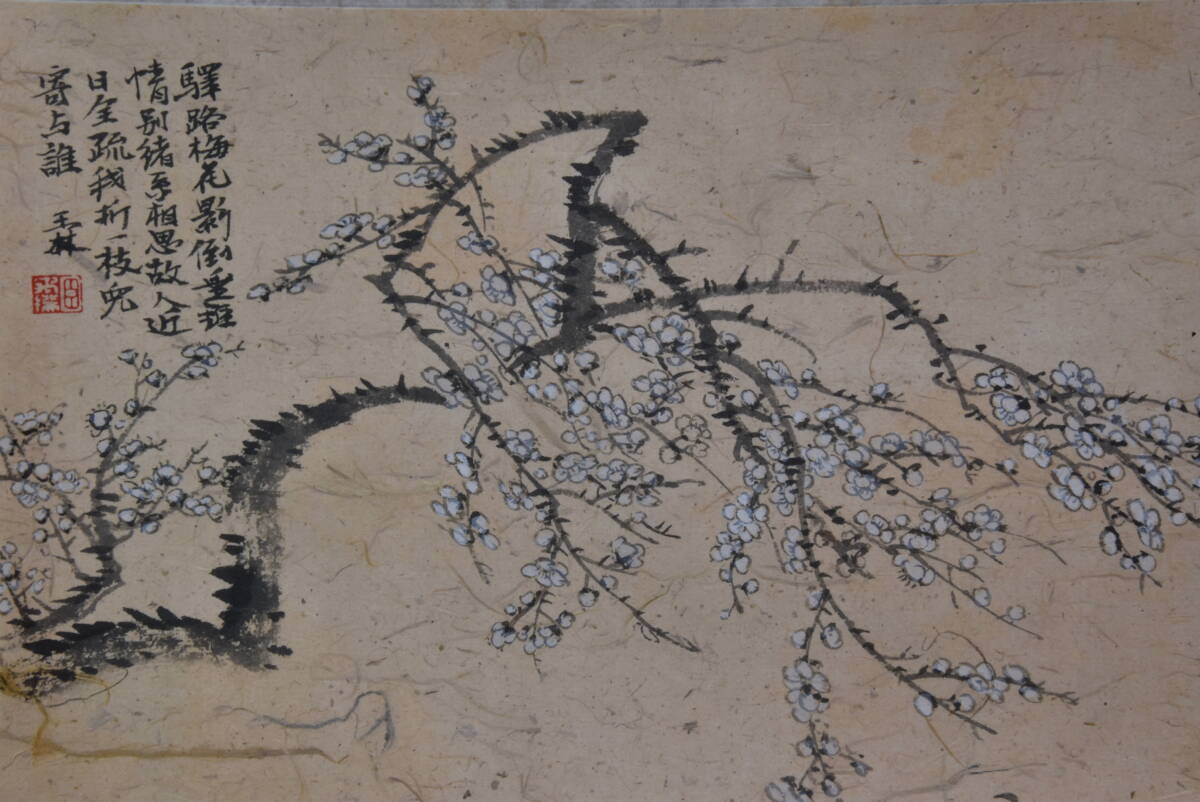 驛路梅花影倒垂離
情别緒系相思故人近
日全疏我折一枝兒
寄与誰
玉霖